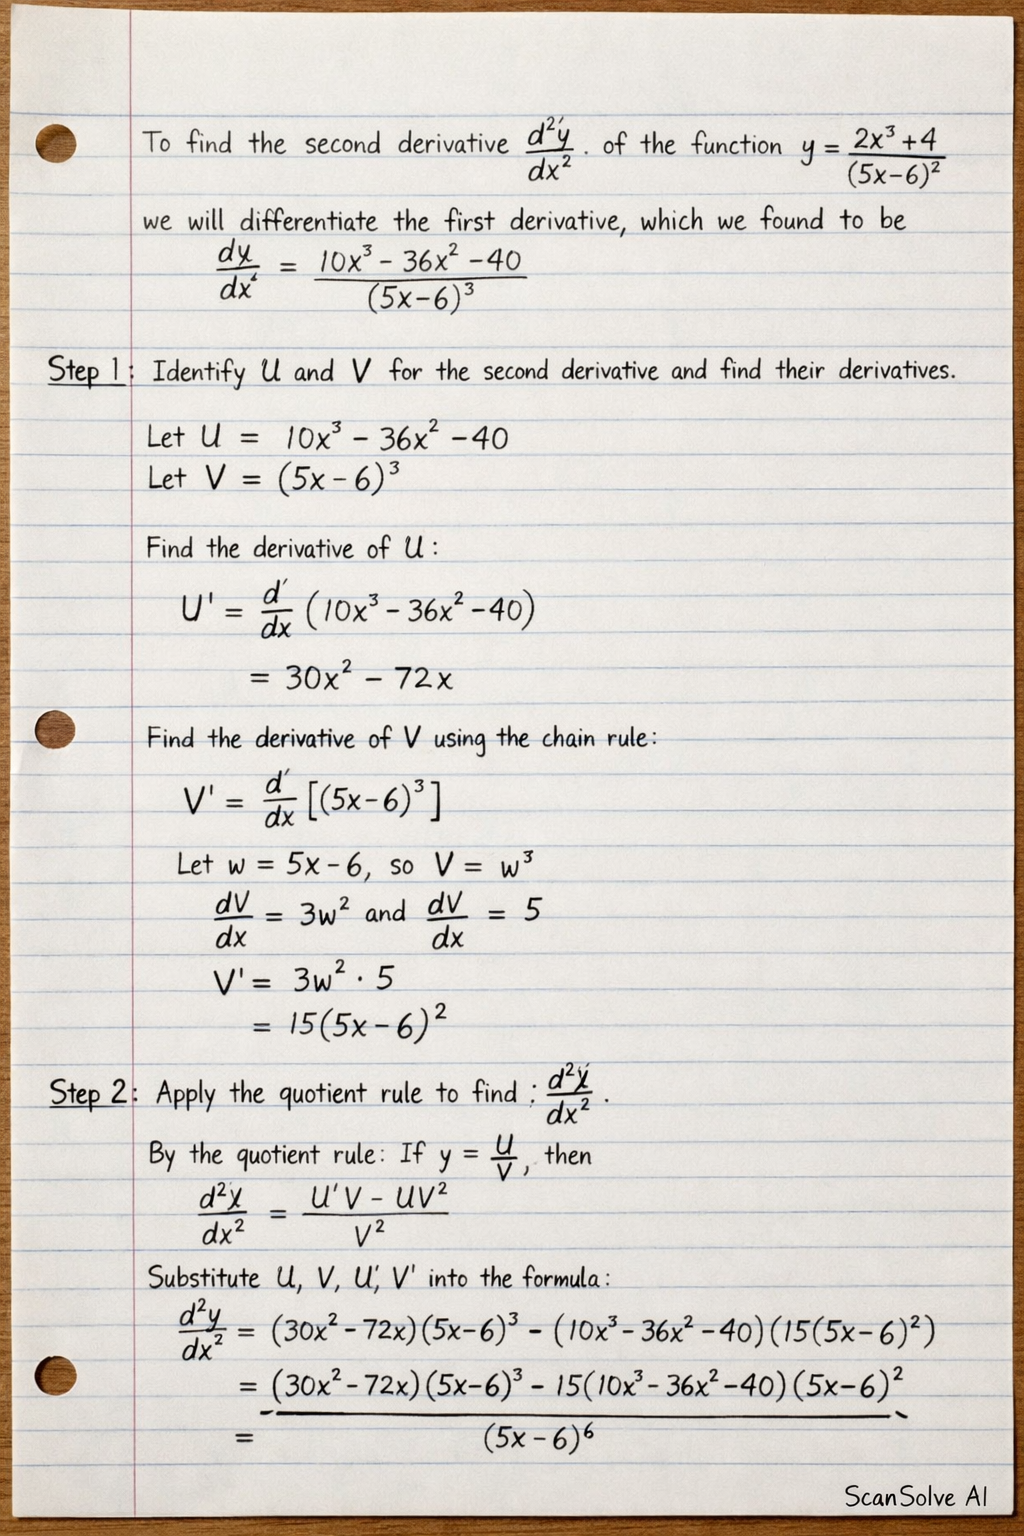 To find the second derivative d²y/dx² . of the function y = 2x³+4/(5x-6)²
we will differentiate the first derivative, which we found to be
dy/dx = 10x³ - 36x² - 40/(5x-6)³
Step 1: Identify U and V for the second derivative and find their derivatives.
Let U = 10x³ - 36x² - 40
Let V = (5x-6)³
Find the derivative of U:
U' = d/dx (10x³ - 36x² - 40)
= 30x² - 72x
Find the derivative of V using the chain rule:
V' = d/dx [(5x-6)³]
Let w = 5x-6, so V = w³
dV/dx = 3w² and dV/dx = 5
V' = 3w² · 5
= 15(5x-6)²
Step 2: Apply the quotient rule to find : d²y/dx² .
By the quotient rule: If y = U/V, then
d²y/dx² = U'V - UV²/V²
Substitute U, V, U', V' into the formula:
d²y/dx² = (30x² - 72x)(5x-6)³ - (10x³ - 36x² - 40)(15(5x-6)²)
= (30x² - 72x)(5x-6)³ - 15(10x³ - 36x² - 40)(5x-6)²
= (5x-6)⁶
ScanSolve AI